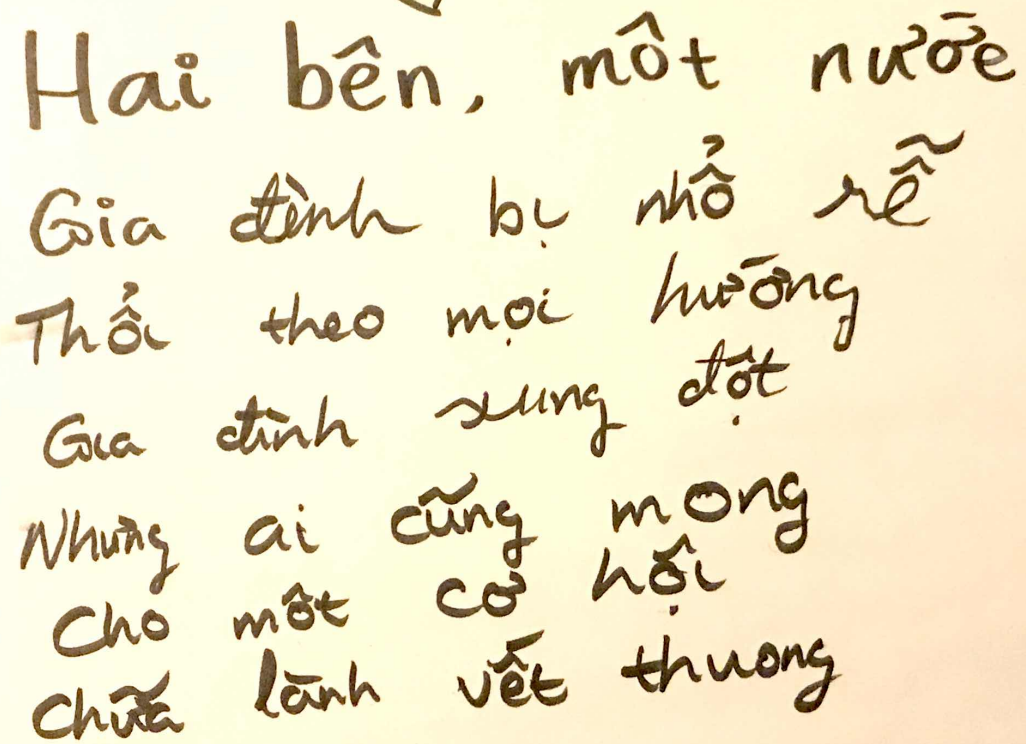 Hai bên, môt nước
Gia đình bị nhổ rễ
Thổi theo mọi hướng
Gia đình xung đột
Nhưng ai cũng mong
Cho môt cơ hội
Chữa lành vết thuong